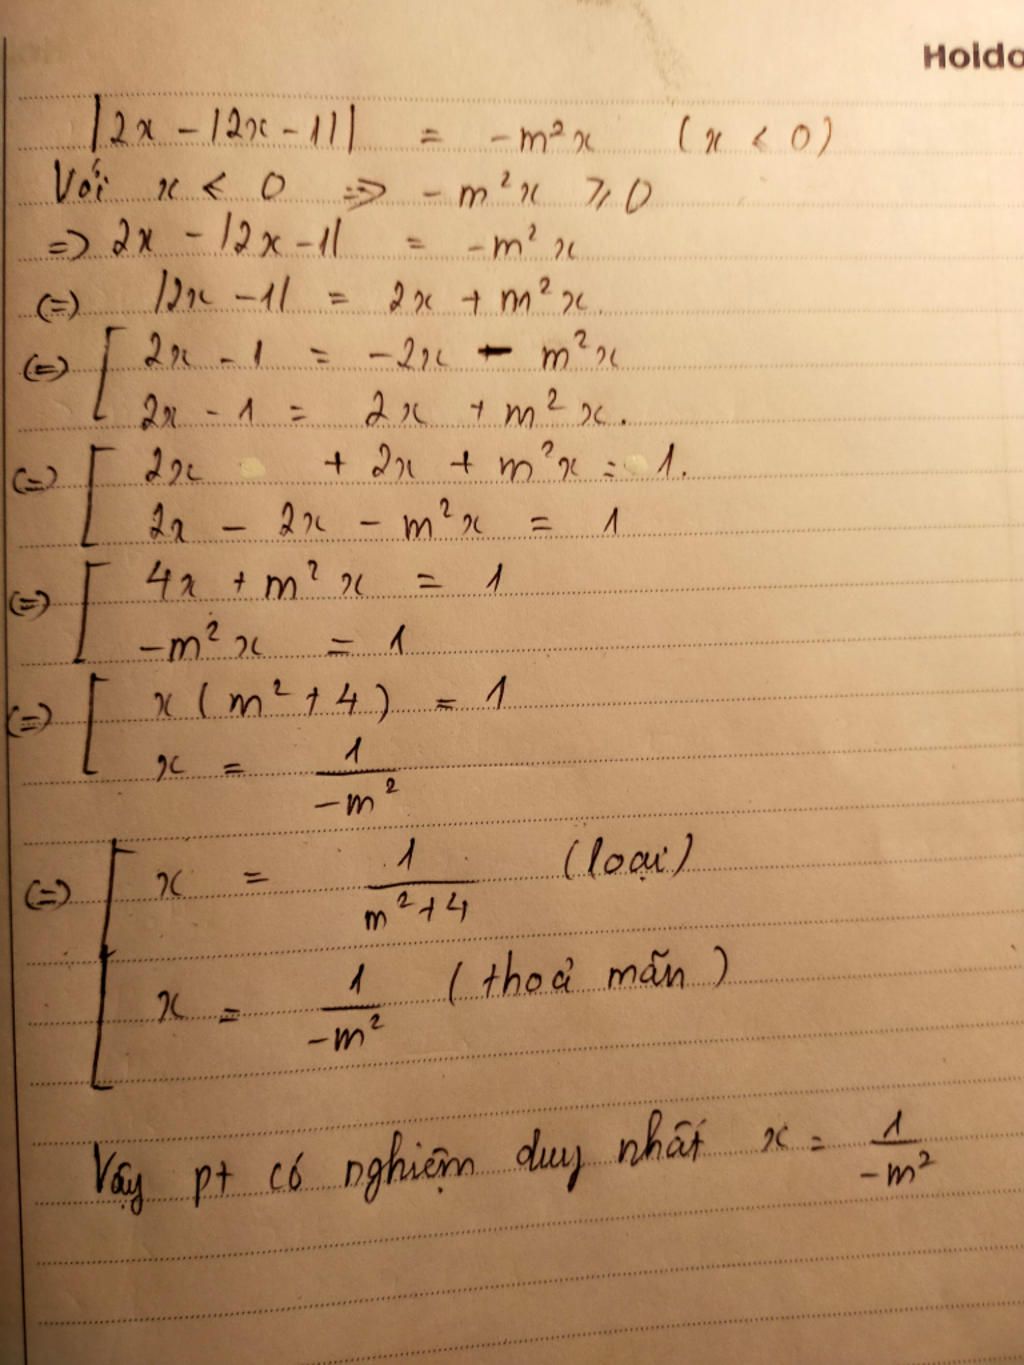 Holdo
|2x - |2x - 1|| = -m²x (x < 0)
Với x < 0 => -m²x ⩾ 0
=> 2x - |2x - 1| = -m²x
(=) |2x - 1| = 2x + m²x.
(=) [ 2x - 1 = -2x - m²x
2x - 1 = 2x + m²x.
(=) [ 2x + 2x + m²x = 1.
2x - 2x - m²x = 1
(=) [ 4x + m²x = 1
-m²x = 1
(=) [ x (m² + 4) = 1
x = 1/-m²
(=) [ x = 1/m²+4 (loại)
x = 1/-m² (thoả mãn)
Vậy pt có nghiệm duy nhất x = 1/-m²